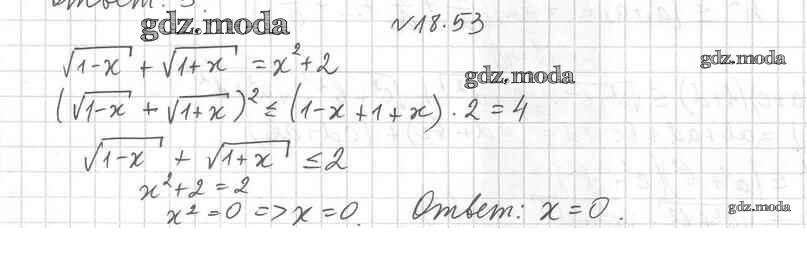 gdz.moda
№18.53
√1-x + √1+x = x²+2
gdz.moda
gdz.moda
(√1-x + √1+x)² ≤ (1-x+1+x)·2=4
√1-x + √1+x ≤2
x²+2=2
x²=0 => x=0.
Ответ: x=0.
gdz.moda